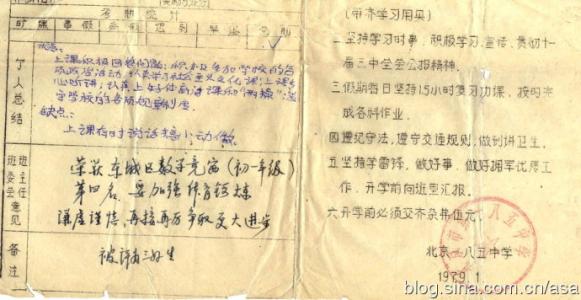 考勤统计
旷课 事假 病假 迟到 早退 全勤
√
个人总结
优点:
上课积极回答问题,积极参加学校的各
守学校的各项规章制度
缺点:
上课有时说话搞小动作
班主任
班委会意见
荣获东城区数学竞赛(初一年级)
第四名 要加强体育锻炼
谦虚谨慎,再接再厉争取更大进步
备注
被评为三好生
(带齐学习用具)
二坚持学习时事,积极学习、宣传、贯彻十一
届三中全会公报精神。
三假期每日坚持1.5小时复习功课,按时完
成各科作业。
四遵纪守法,遵守交通规则,做到讲卫生。
五坚持学雷锋,做好事,做好拥军优属工
作,开学前向班里汇报。
六开学前必须交齐杂费伍元。
北京一八五中学
1979.1.
blog.sina.com.cn/asa